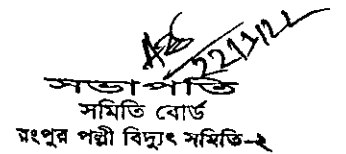 22/1/22
সভাপতি
সমিতি বোর্ড
রংপুর পল্লী বিদ্যুৎ সমিতি-২